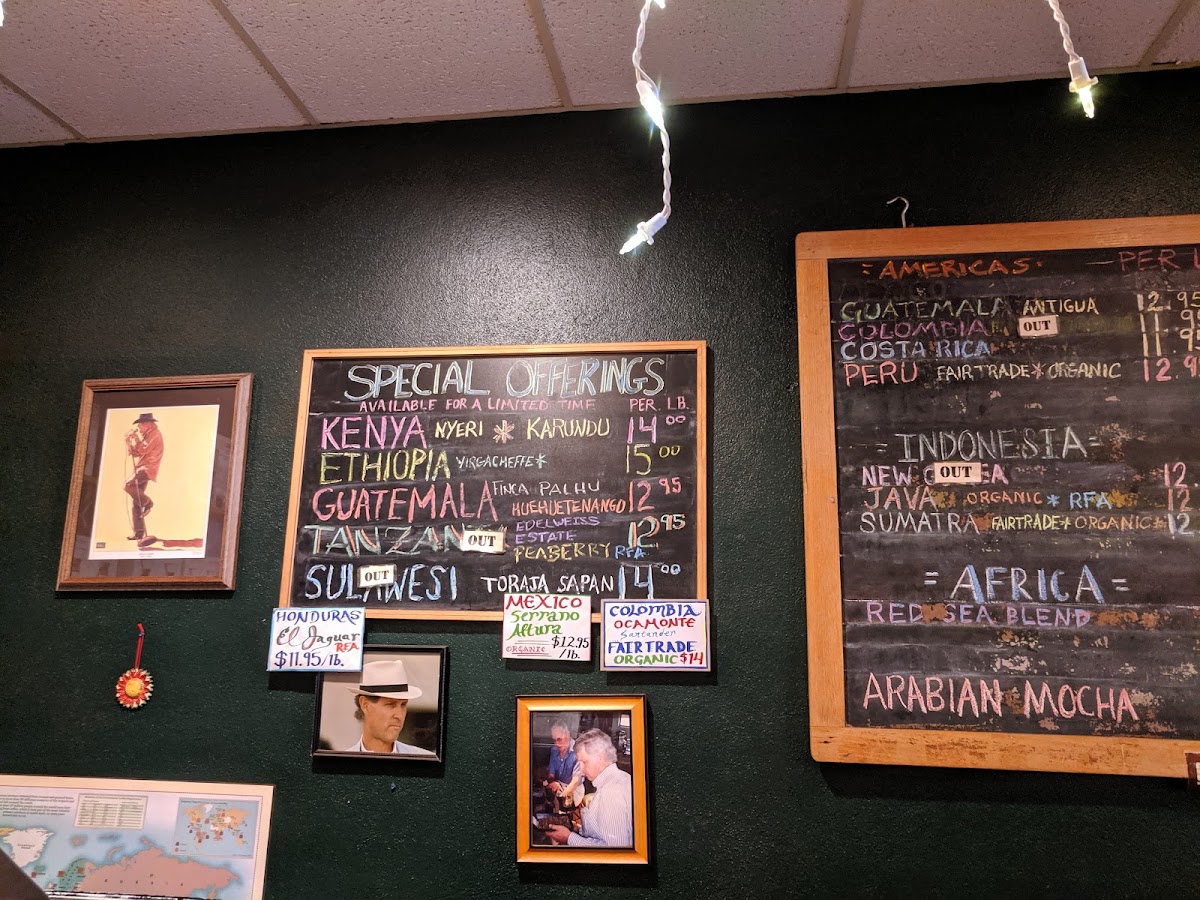 SPECIAL OFFERINGS
AVAILABLE FOR A LIMITED TIME PER LB.
KENYA NYERI * KARUNDU 14 00
ETHIOPIA YIRGACHEFFE* 15 00
GUATEMALA FINCA PALHU HUEHUETENANGO 12 95
TANZAN OUT EDELWEISS ESTATE PEABERRY RFA 12 95
SULAWESI OUT TORAJA SAPAN 14 00
HONDURAS
El Jaguar
RFA
$11.95/lb.
MEXICO
Serrano
Altura
ORGANIC $12.95
/lb.
COLOMBIA
OCAMONTE
Santander
FAIRTRADE
ORGANIC $14
=AMERICAS= —PER L
GUATEMALA ANTIGUA 12.95
COLOMBIA OUT 11.95
COSTA RICA 11.95
PERU FAIRTRADE*ORGANIC 12.9
=INDONESIA=
NEW G OUT EA 12
JAVA ORGANIC * RFA 12
SUMATRA FAIRTRADE+ORGANIC 12
=AFRICA=
RED SEA BLEND
ARABIAN MOCHA